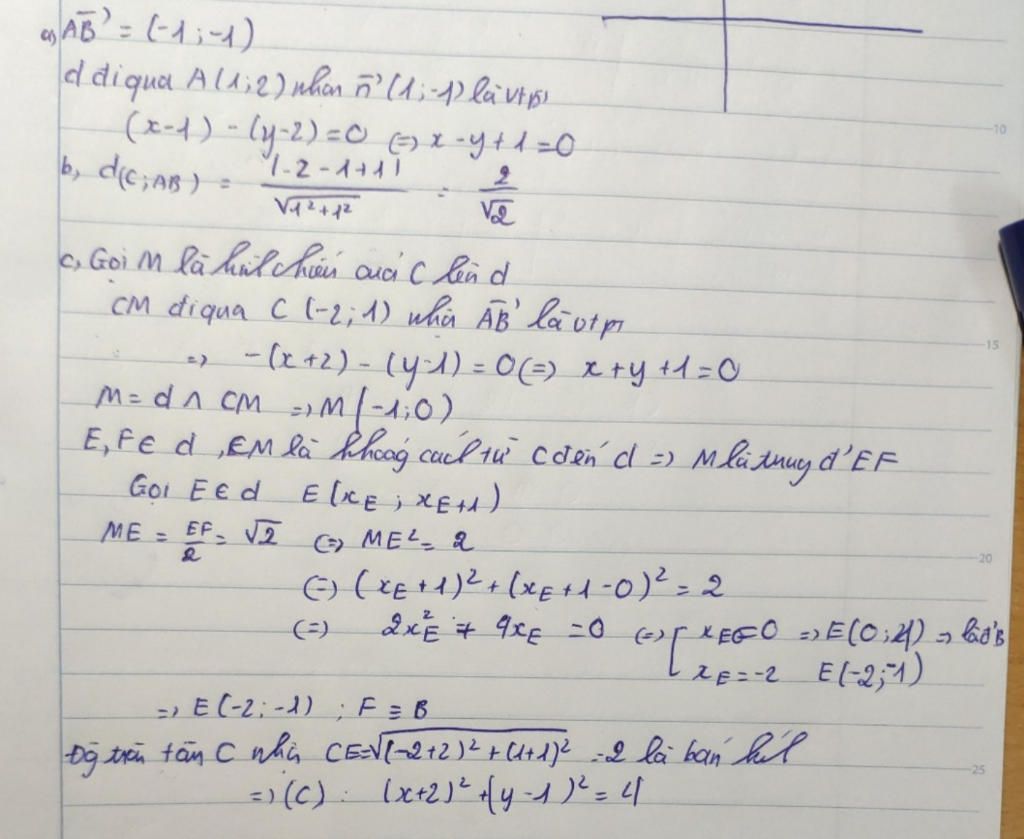 a, AB→ = (-1; -1)
d đi qua A(1;2) nhận n→(1;-1) là vtpt
(x-1) - (y-2) = 0 (=) x - y + 1 = 0
10
b, d(C;AB) = |-2 - 1 + 1| / √1²+1² = 2/√2
c, Gọi M là hình chiếu của C lên d
CM đi qua C (-2;1) nhận AB→ là vtpt
15
=> -(x+2) - (y-1) = 0 (=) x + y + 1 = 0
M = d ∩ CM => M(-1;0)
E, F ∈ d, CM là khoảng cách từ C đến d => M là trung đ' EF
Gọi E ∈ d E(x_E ; x_E+1)
ME = EF/2 = √2 (=) ME² = 2
20
(=) (x_E + 1)² + (x_E + 1 - 0)² = 2
(=) 2x_E² + 4x_E = 0 (=) [ x_E = 0 => E(0;1) => là đ' B
x_E = -2 E(-2;-1)
=> E(-2;-1) ; F ≡ B
Đg tròn tâm C nhận CE = √(-2+2)² + (1+1)² = 2 là bán kính
25
=> (C) : (x+2)² + (y-1)² = 4